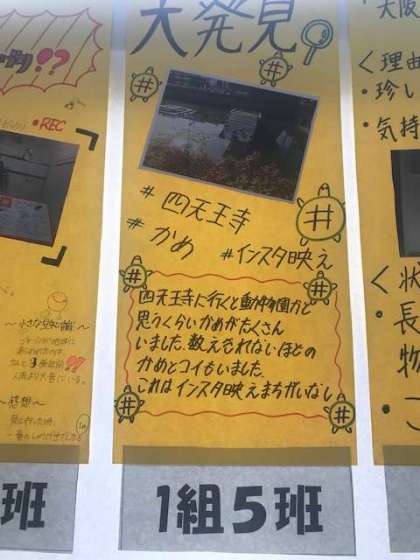 大発見
#四天王寺
#かめ #インスタ映え
四天王寺に行くと動物園かと
思うくらいかめがたくさん
いました。数えきれないほどの
かめとコイもいました。
これはインスタ映えまちがいなし
1組5班
!?
REC
〜感想〜
班
大阪
<理由
・珍し
・気持
<状
・長
物
・こ